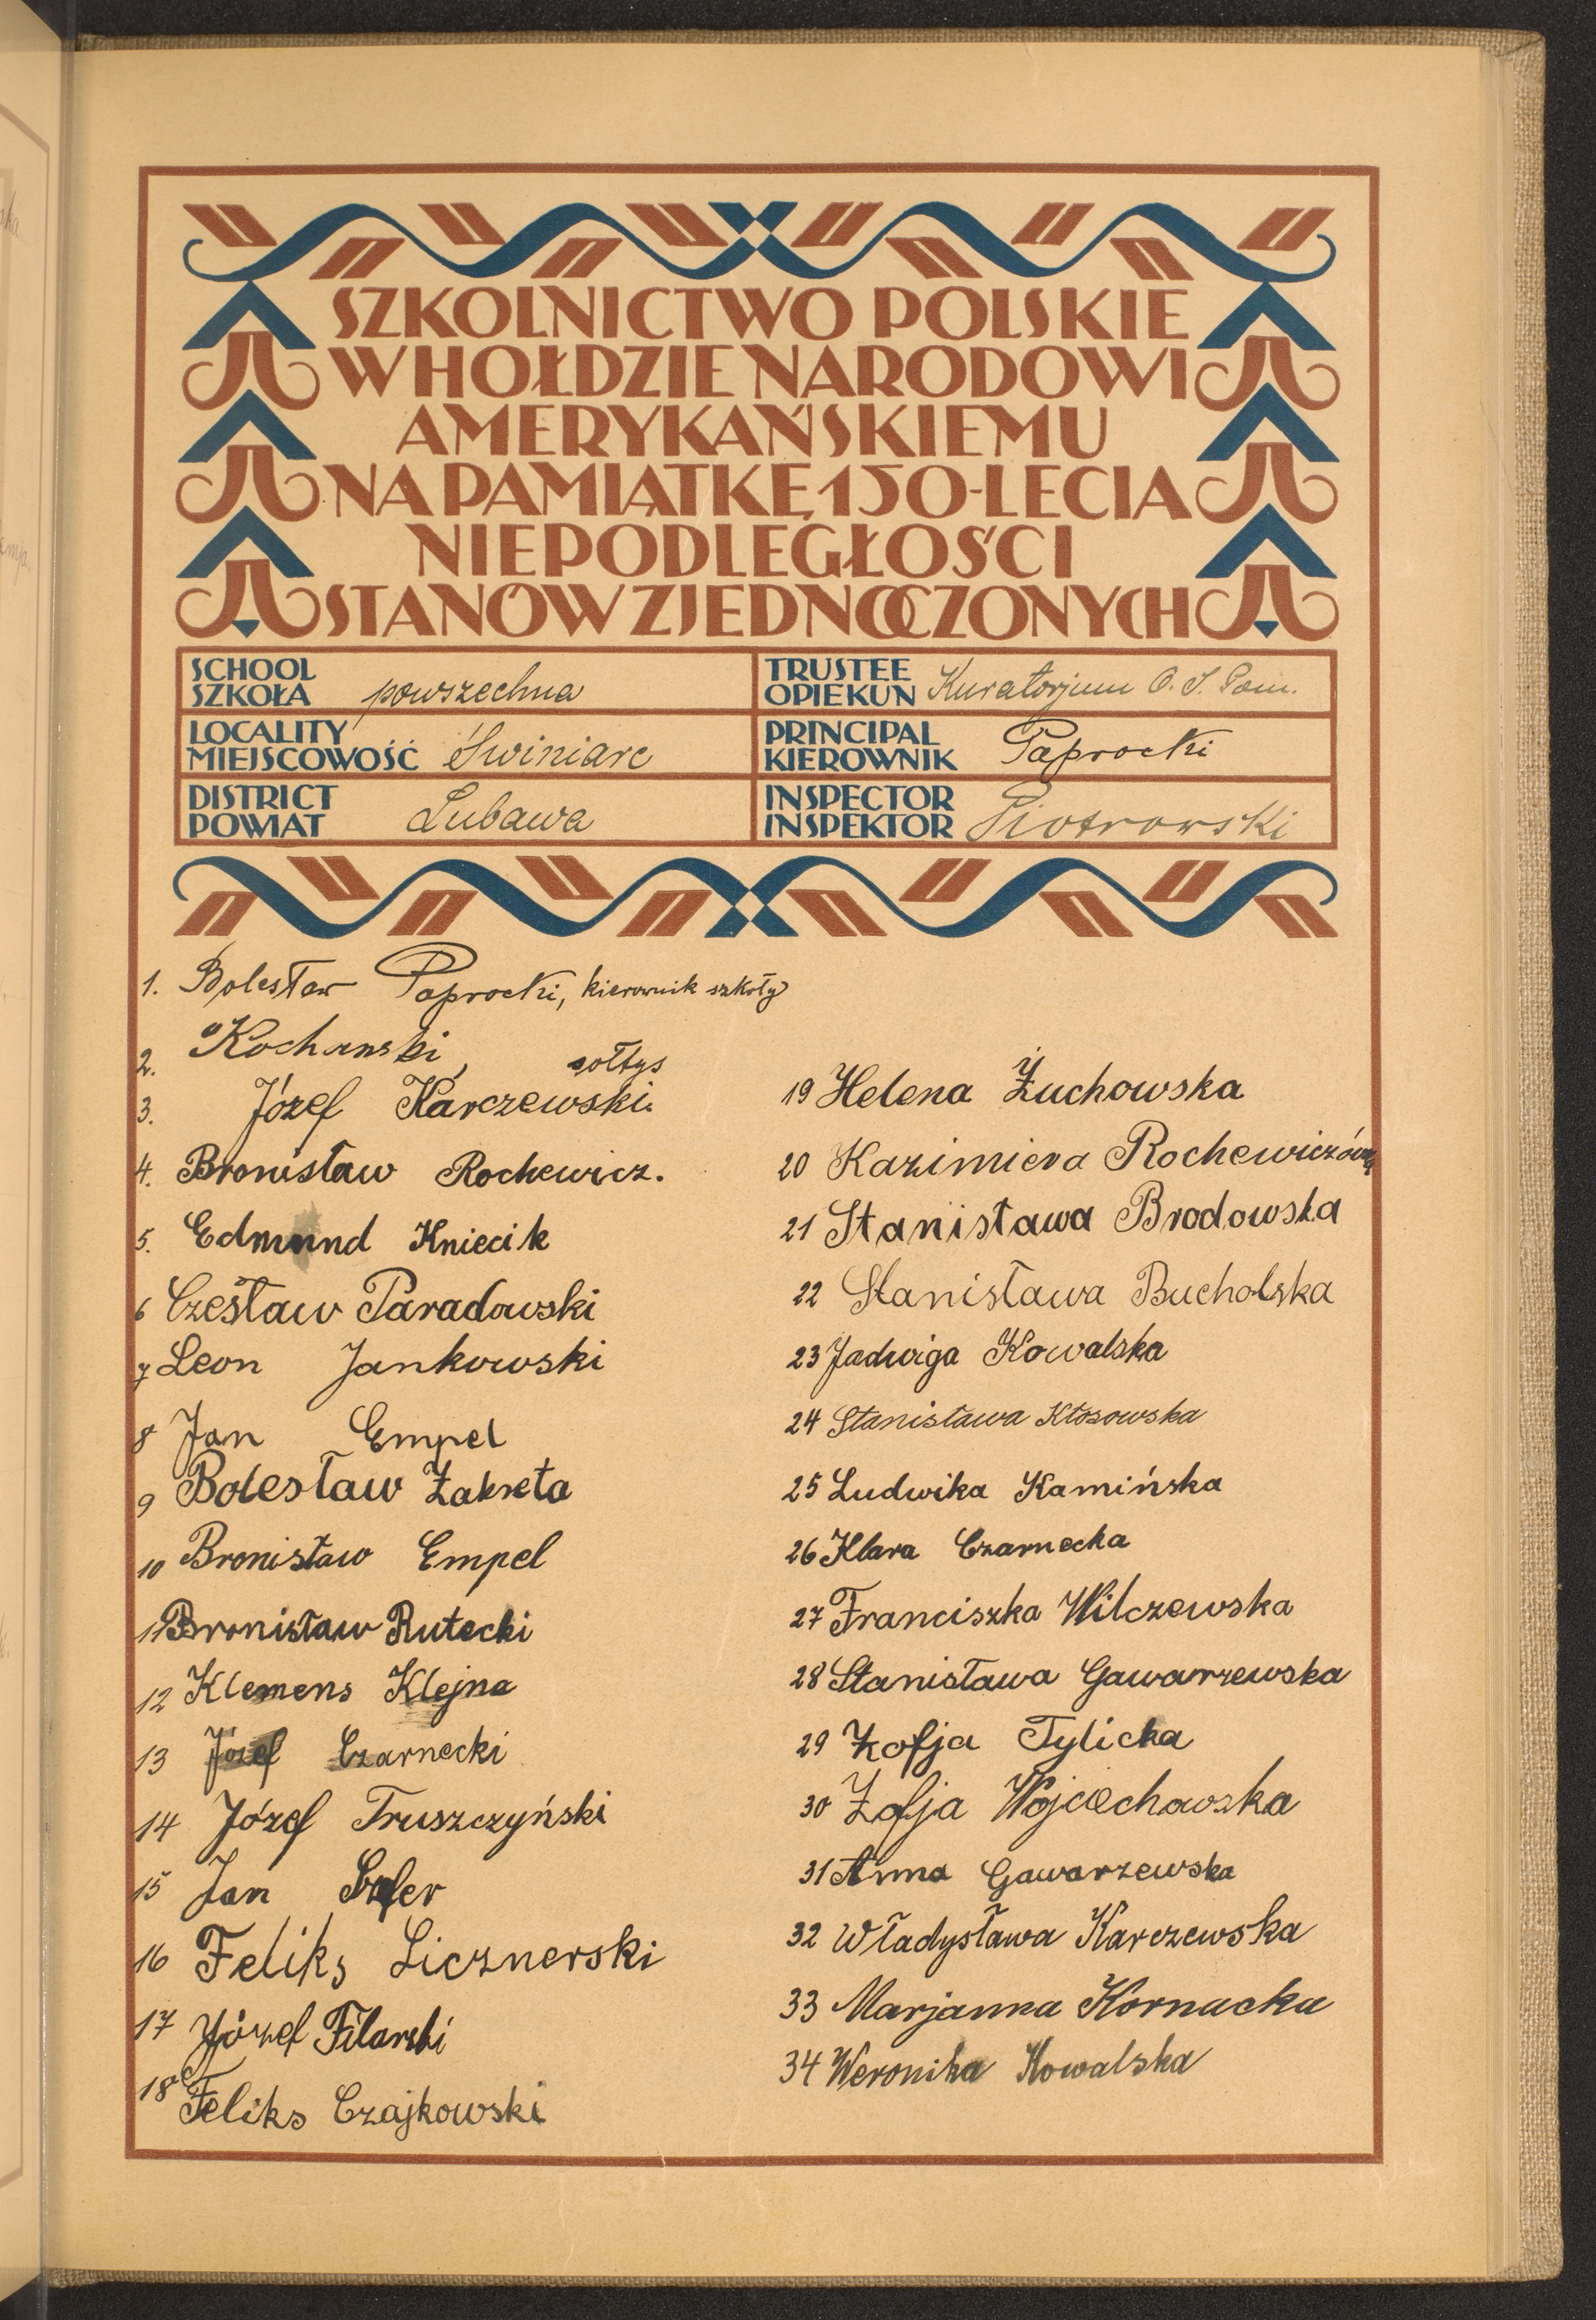 SZKOLNICTWO POLSKIE
W HOŁDZIE NARODOWI
AMERYKAŃSKIEMU
NA PAMIĄTKĘ 150-LECIA
NIEPODLEGŁOŚCI
STANÓW ZJEDNOCZONYCH
SCHOOL
SZKOŁA powszechna
TRUSTEE
OPIEKUN Kuratorjum O. S. Pom.
LOCALITY
MIEJSCOWOŚĆ Świniarc
PRINCIPAL
KIEROWNIK Paprocki
DISTRICT
POWIAT Lubawa
INSPECTOR
INSPEKTOR Piotrowski
1. Bolesław Paprocki, kierownik szkoły
2. Kochanski, sołtys
3. Józef Karczewski.
4. Bronisław Rochewicz.
5. Edmund Kniecik
6 Czesław Paradowski
7 Leon Jankowski
8 Jan Empel
9 Bolesław Zakreta
10 Bronisław Empel
11 Bronisław Rutecki
12 Klemens Klejna
13 Józef Czarnecki
14 Józef Truszczyński
15 Jan
16 Feliks Licznerski
17 Józef Filarski
18 Feliks Czajkowski
19 Helena Żuchowska
20 Kazimiera Rochewiczówna
21 Stanisława Brodowska
22 Stanisława Bucholska
23 Jadwiga Kowalska
24 Stanisława Kłosowska
25 Ludwika Kamińska
26 Klara Czarnecka
27 Franciszka Wilczewska
28 Stanisława Gawarzewska
29 Zofja Tylicka
30 Zofja Wojciechowska
31 Anna Gawarzewska
32 Władysława Karczewska
33 Marjanna Kornacka
34 Weronika Kowalska